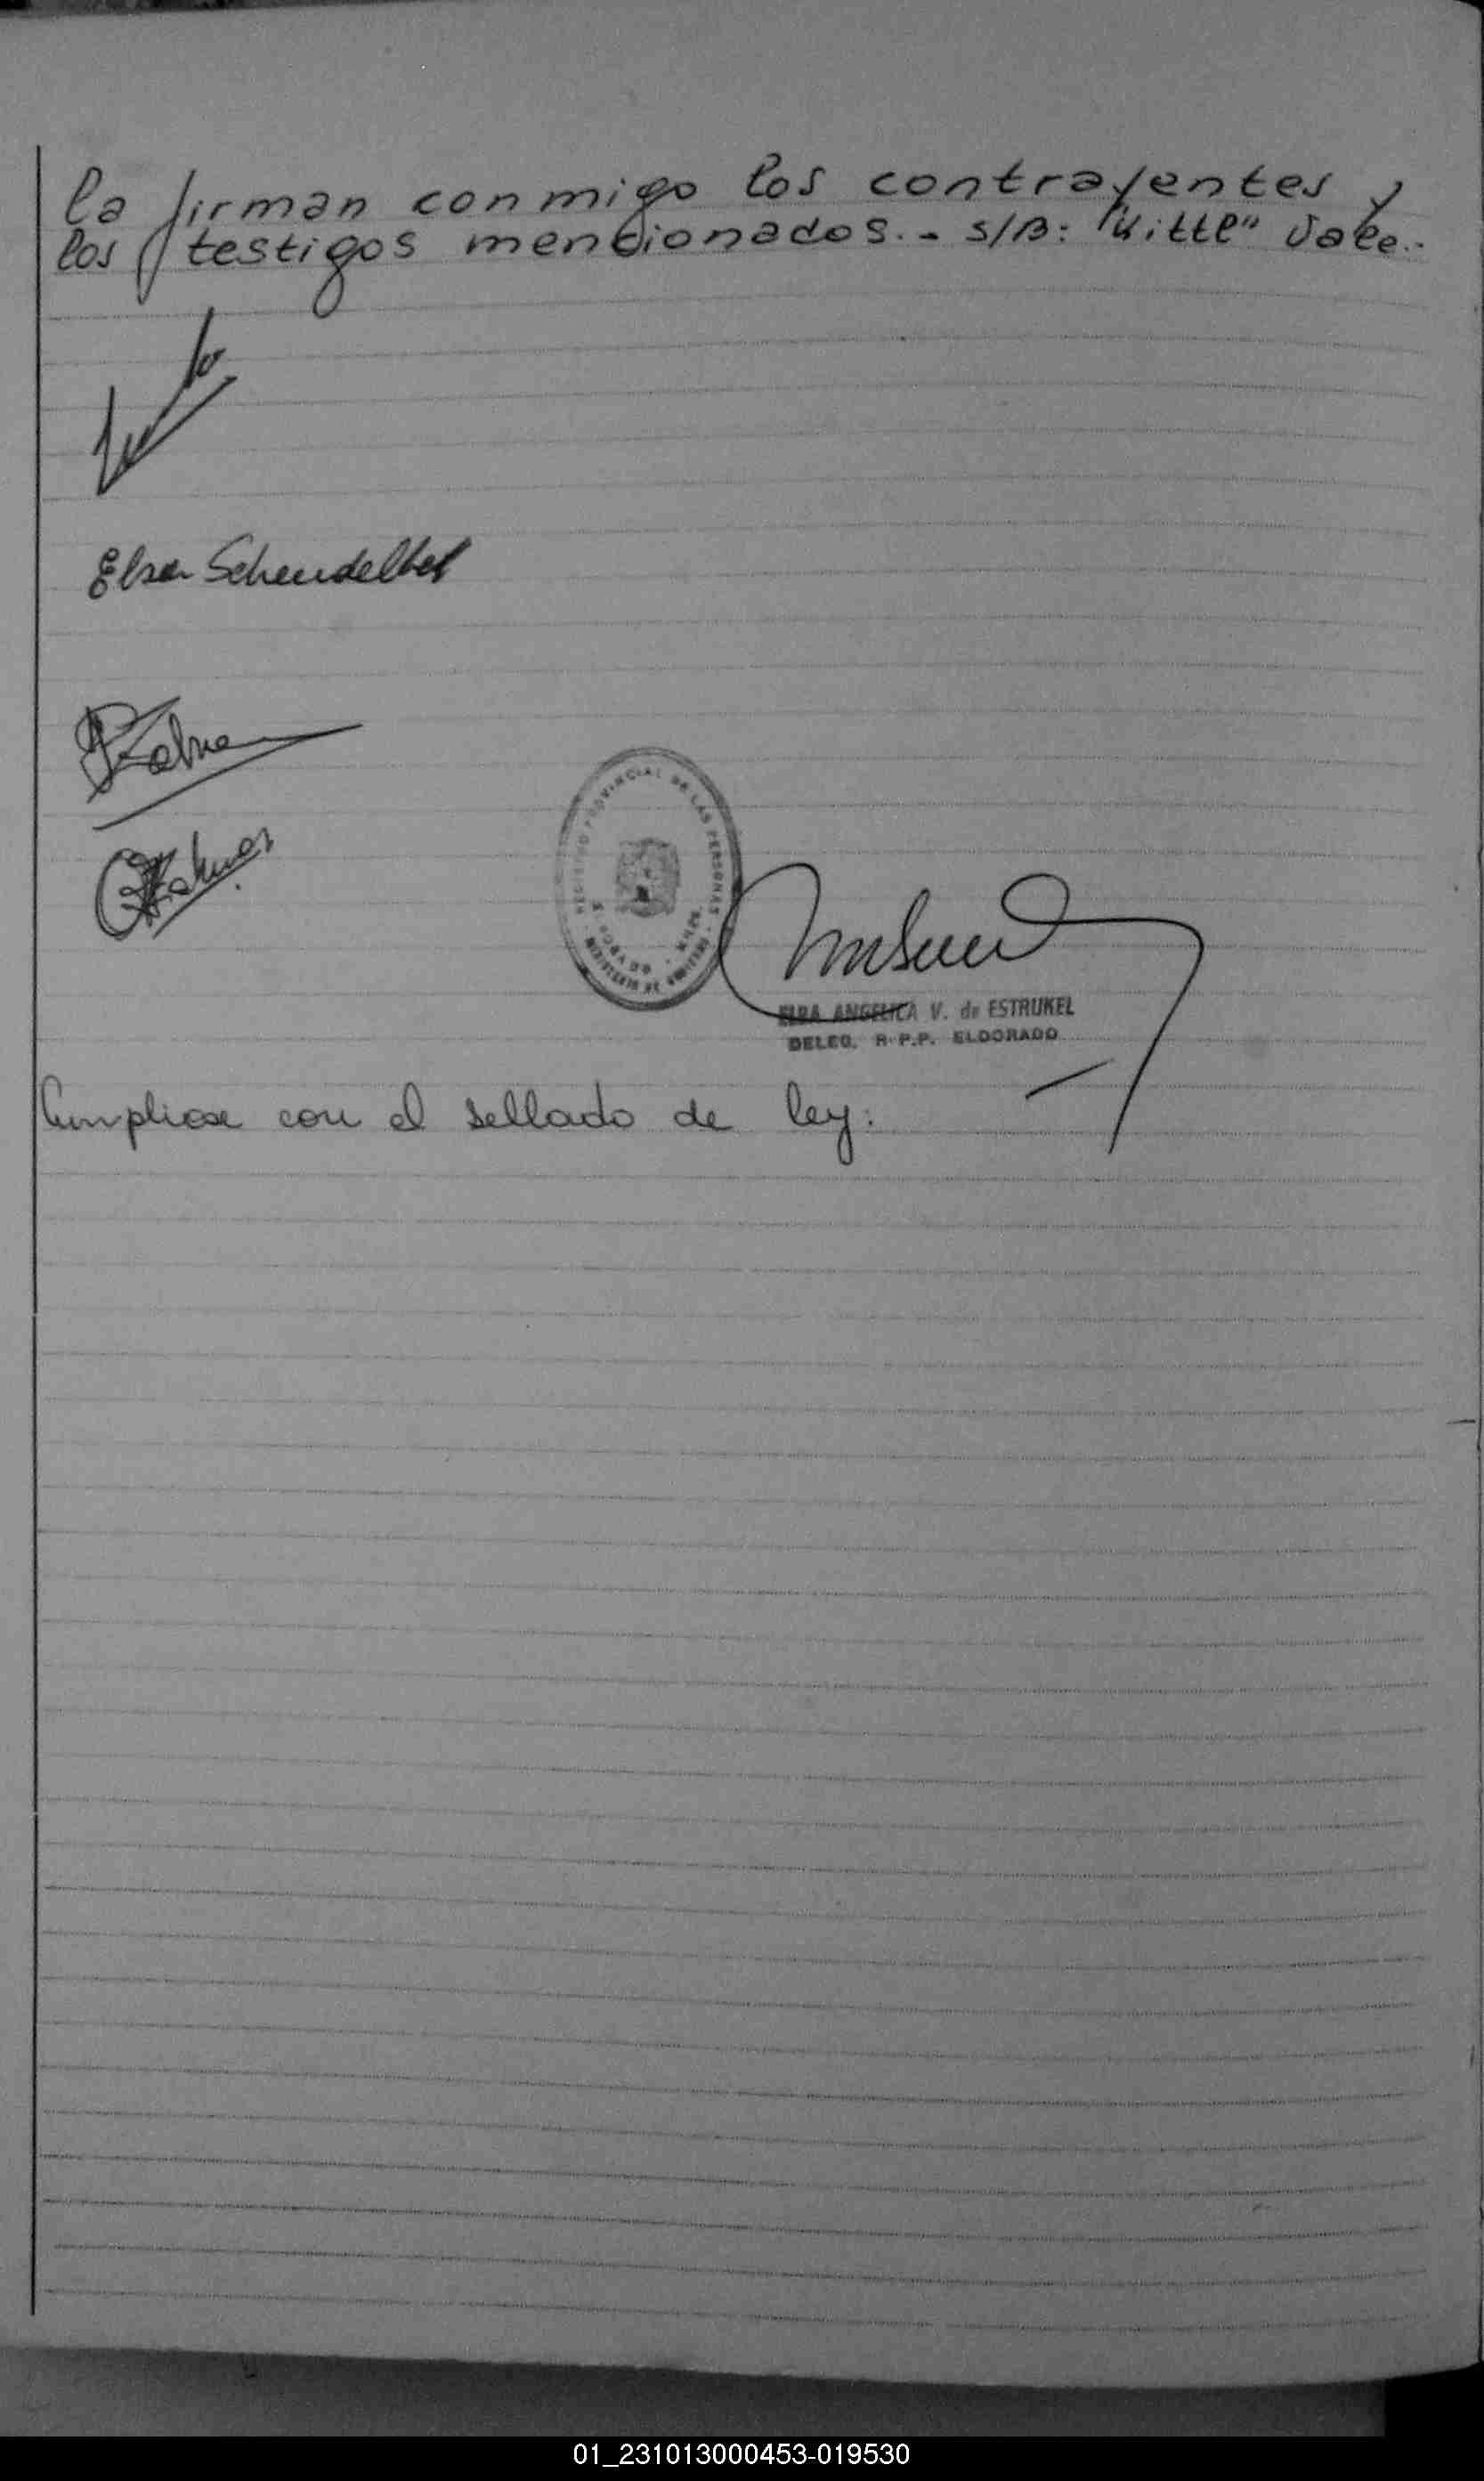 la firman conmigo los contrayentes y
los testigos mencionados.- S/B: "Kittl" Vale.-
Elsa Schendelbek
REGISTRO PROVINCIAL DE LAS PERSONAS
MINISTERIO DE GOBIERNO
ELBA ANGELICA V. de ESTRUKEL
DELEG. R.P.P. ELDORADO
Cumpliose con el sellado de ley:
01_231013000453-019530